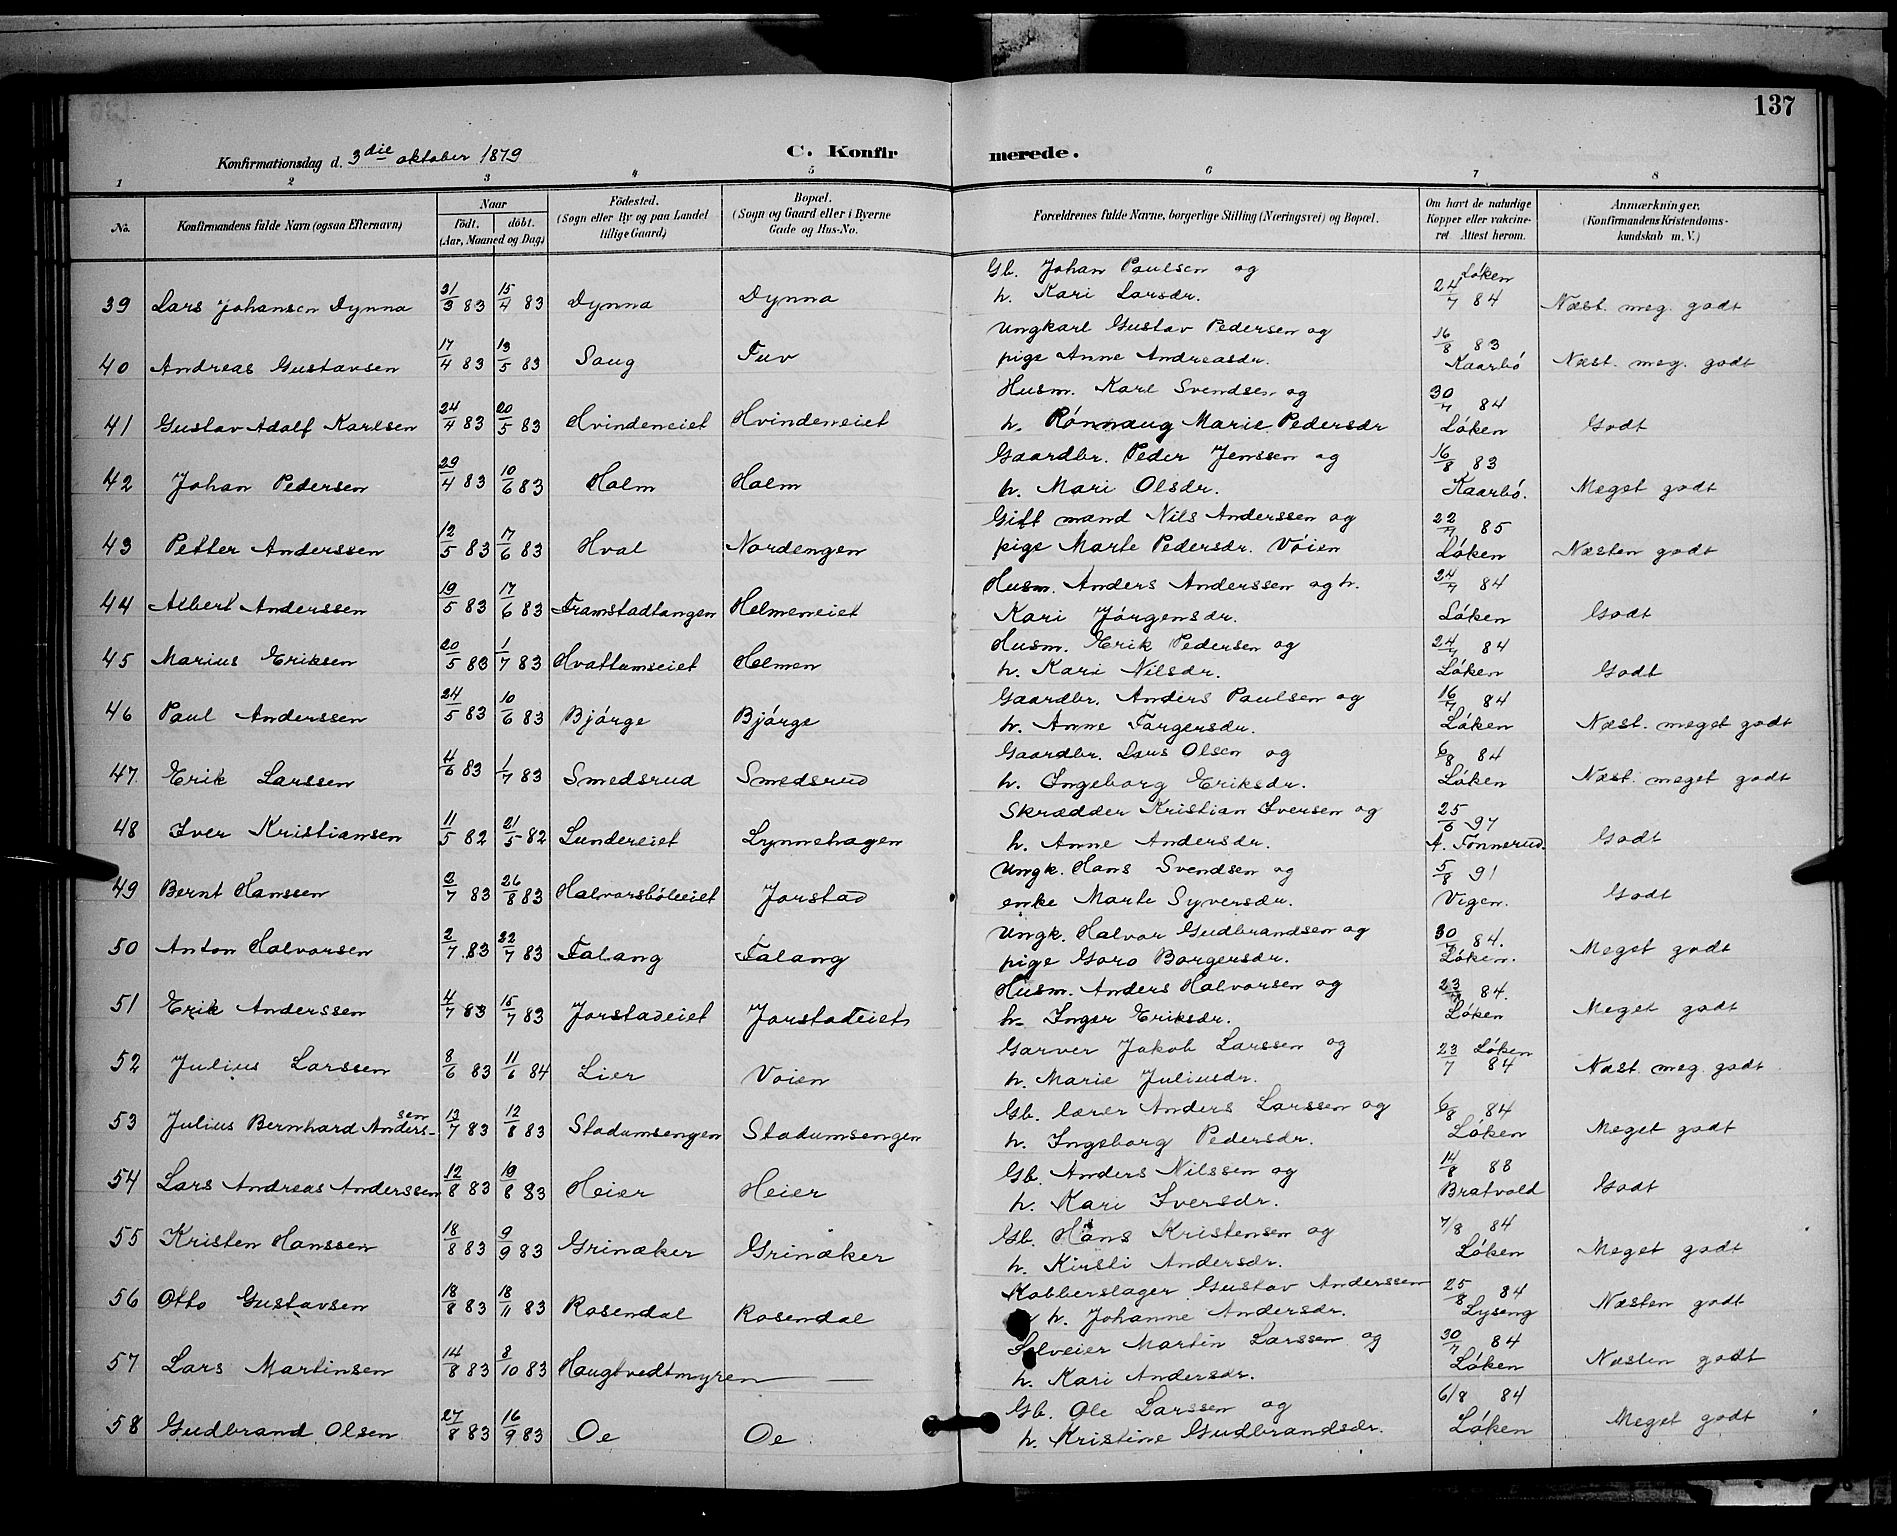 137
Konfirmationsdag d. 3die oktober 1879 C. Konfirmerede.
1 2 3 4 5 6 7 8
No. Konfirmandens fulde Navn (ogsaa Efternavn) Naar födt. döbt. (Aar, Maaned og Dag) Födested. (Sogn eller By og paa Landet tillige Gaard) Bopæl. (Sogn og Gaard eller i Byerne Gade og Hus-No. Forældrenes fulde Navne, borgerlige Stilling (Næringsvei) og Bopæl. Om havt de naturlige Kopper eller vakcineret. Attest herom. Anmærkninger. (Konfirmandens Kristendomskundskab m. V.)
39 Lars Johansen Dynna 21/3 83 15/4 83 Dynna Dynna Gb. Johan Paulsen og h. Kari Larsdr. 24/7 84 Løken Næst. meg. godt
40 Andreas Gustavsen 17/4 83 13/5 83 Saug Tuv Ungkarl Gustav Pedersen og pige Anne Andreasdr. 16/8 83 Kaarbó Næst. meg. godt
41 Gustav Adolf Karlsen 24/4 83 20/5 83 Hvindeneiet Hvindeneiet Husm. Karl Svendsen og h. Rónnaug Marie Pedersdr 30/7 84 Løken Godt
42 Johan Pedersen 29/4 83 10/6 83 Halm Halm Gaardbr. Peder Jenssen og h. Mari Olsdr. 16/8 83 Kaarbó. Meget godt
43 Petter Anderssen 12/5 83 17/6 83 Hval Nordengen Gift mand Nils Anderssen og pige Marte Pedersdr. Vóien 22/7 85 Løken Næsten godt
44 Albert Anderssen 19/5 83 17/6 83 Framstadtangen Helmeneiet Husm. Anders Anderssen og h. Kari Jórgensdr. 24/7 84 Løken Godt
45 Marius Eriksen 20/5 83 1/7 83 Hvattumseiet Helmen Husm. Erik Pedersen og h. Kari Nilsdr. 24/7 84 Løken Godt
46 Paul Anderssen 24/5 83 10/6 83 Bjórge Bjórge Gaardbr. Anders Paulsen og h. Anne Torgersdr. 16/7 84 Løken Næst. meget godt
47. Erik Larssen 4/6 83 1/7 83 Smedsrud Smedsrud Gaardbr. Lars Olsen og h. Ingeborg Eriksdr. 6/8 84 Løken Næst. meget godt
48 Iver Kristiansen 11/5 82 21/5 82 Lundereiet Lynnehagen Skrædder Kristian Iversen og h. Anne Andersdr. 25/6 97 A. Tønnerud. Godt
49 Bernt Hanssen 2/7 83 26/8 83 Halvorsbóleeiet Jorstad Ungk. Hans Svendsen og enke Marte Syversdr. 5/8 91 Vigen. Godt
50 Anton Halvorsen 2/7 83 22/7 83 Falang Falang Ungk. Halvor Gudbrandsen og pige Goro Borgersdr. 30/7 84. Løken. Meget godt
51 Erik Anderssen 4/7 83 15/7 83 Jorstadeiet Jorstadeiet Husm. Anders Halvorsen og h. Inger Eriksdr. 23/7 84. Løken Meget godt
52 Julius Larssen 8/6 83 11/6 84 Lier Voien Garver Jakob Larssen og h. Marie Juliusdr. 23/7 84 Løken Næst. meg. godt
53 Julius Bernhard Anderssen 13/7 83 12/8 83 Stadumsengen Stadumsengen Gb. lærer Anders Larssen og h. Ingeborg Pedersdr. 6/8 84 Løken Meget godt
54 Lars Andreas Anderssen 12/8 83 19/8 83 Heier Heier Gb. Anders Nilssen og h. Kari Iversdr. 14/8 88 Bratvold Godt
55 Kristen Hanssen 18/8 83 9/9 83 Grinaker Grinaker Gb. Hans Kristensen og h. Kirsti Andersdr. 7/8 84 Løken Meget godt
56 Otto Gustavsen 18/8 83 18/11 83 Rosendal Rosendal Kobberslager Gustav Anderssen h. Johanne Andersdr. 25/8 84 Lyseng Næsten godt
57 Lars Martinsen 14/8 83 8/10 83 Haugtvedtmyren — Selveier Martin Larssen og h. Kari Andersdr. 30/7 84 Løken Næsten godt
58 Gudbrand Olsen 27/8 83 16/9 83 Oe Oe Gb. Ole Larssen og h. Kristine Gudbrandsdr. 6/8 84 Løken Meget godt